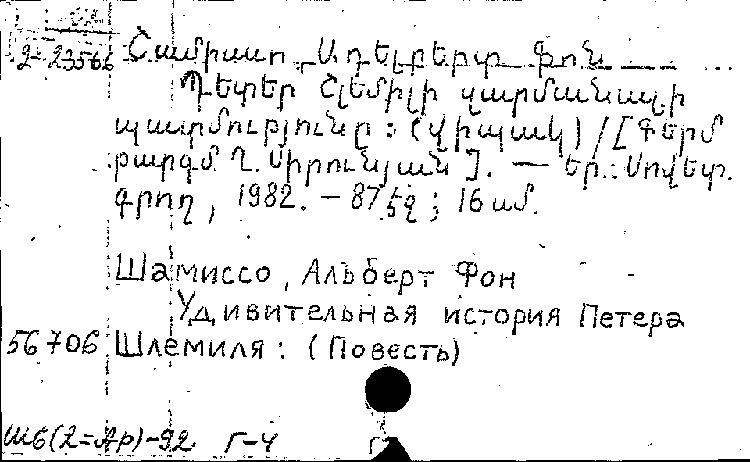 2-23566 Շամիսսո, Ադելբերտ ֆոն
Պետեր Շլեմիլի զարմանալի
պատմությունը: (Վիպակ) / [Գերմ
թարգմ Ղ. Միրունյան]. — Եր.: Սովետ.
գրող, 1982. – 87 էջ ; 16 սմ.
Шамиссо, Альберт Фон
Удивительная история Петера
56706 Шлемиля: (Повесть)
Ш6(2=Ар)-92 Г-4